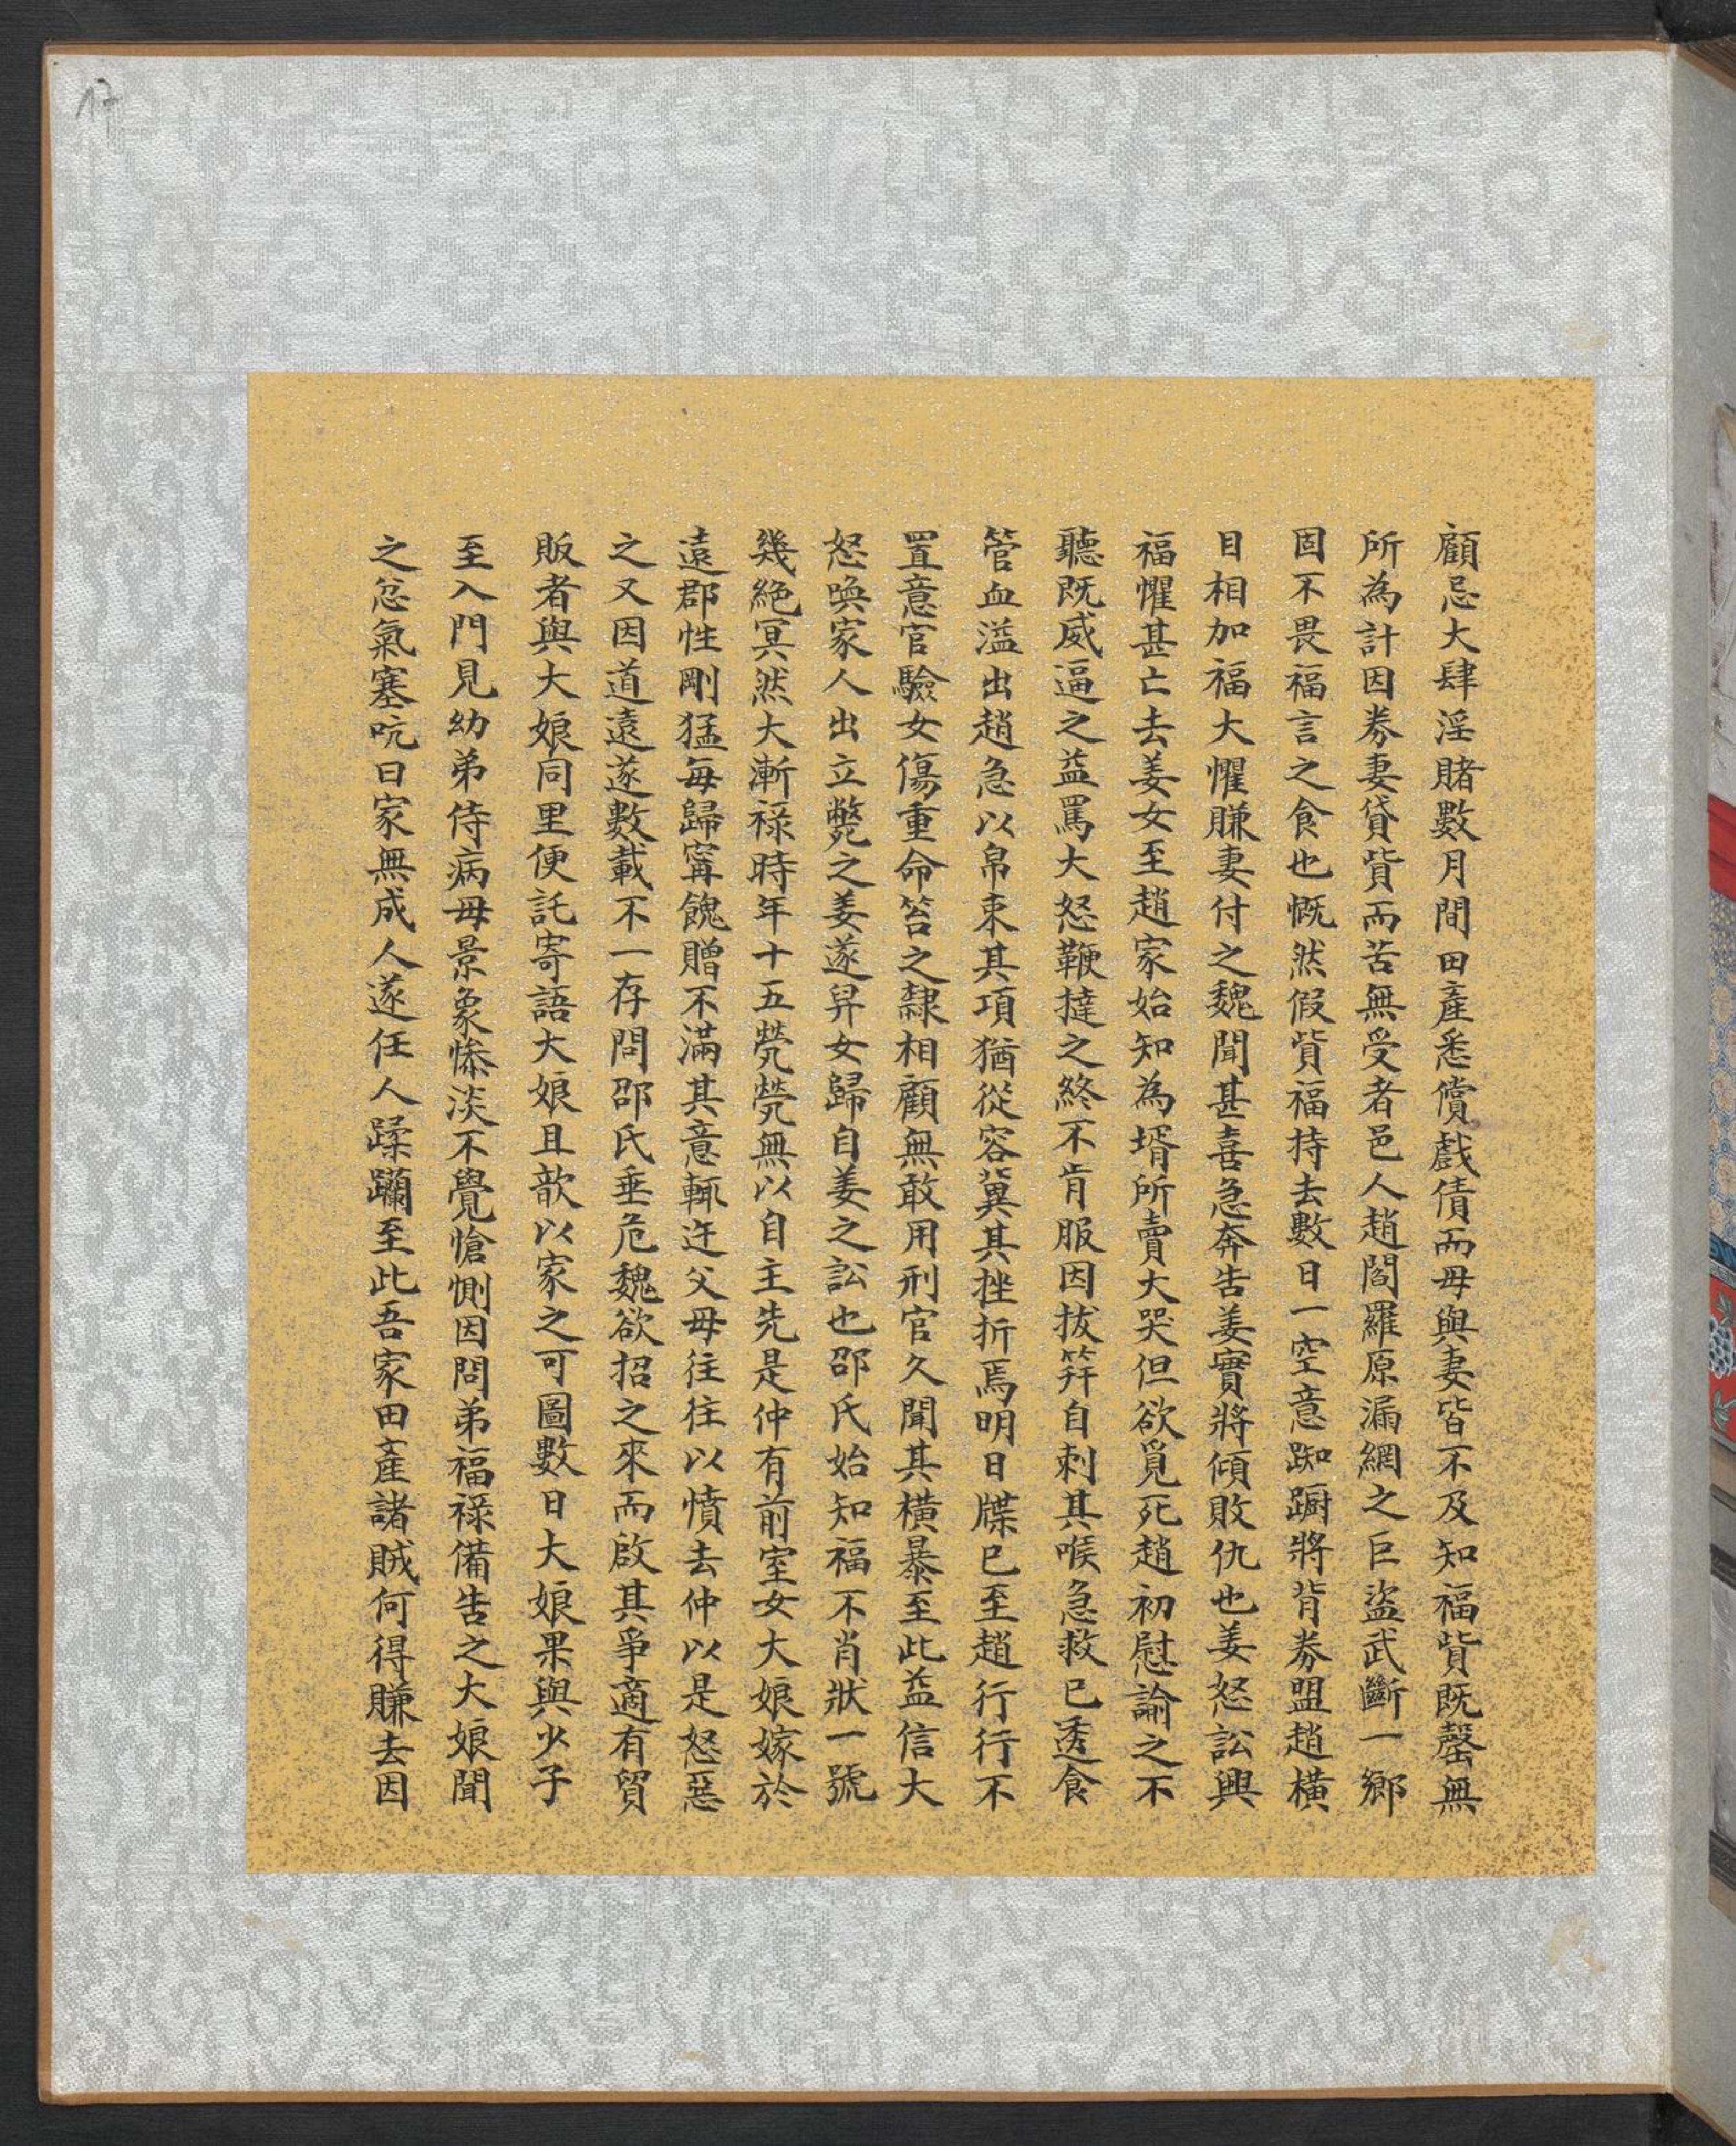 17
顧忌大肆淫賭數月間田產悉償戲債而母與妻皆不及知福貲既罄無
所為計因券妻貸貲而苦無受者邑人趙閻羅原漏網之巨盜武斷一鄉
固不畏福言之食也慨然假貲福持去數日一空意踟躕將背券盟趙橫
目相加福大懼賺妻付之魏聞甚喜急奔告姜實將傾敗仇也姜怒訟興
福懼甚亡去姜女至趙家始知為壻所賣大哭但欲覓死趙初慰諭之不
聽既威逼之益罵大怒鞭撻之終不肯服因拔笄自刺其喉急救已透食
管血溢出趙急以帛束其項猶從容冀其挫折焉明日牒已至趙行行不
置意官驗女傷重命笞之隸相顧無敢用刑官久聞其橫暴至此益信大
怒喚家人出立斃之姜遂舁女歸自姜之訟也邵氏始知福不肖狀一號
幾絕冥然大漸祿時年十五煢煢無以自主先是仲有前室女大娘嫁於
遠郡性剛猛每歸寗餽贈不滿其意輒迕父母往往以憤去仲以是怒惡
之又因道遠遂數載不一存問邵氏垂危魏欲招之來而啟其爭適有貿
販者與大娘同里便託寄語大娘且歆以家之可圖數日大娘果與少子
至入門見幼弟侍病母景象慘淡不覺愴惻因問弟福祿備告之大娘聞
之忿氣塞吭曰家無成人遂任人蹂躪至此吾家田產諸賊何得賺去因